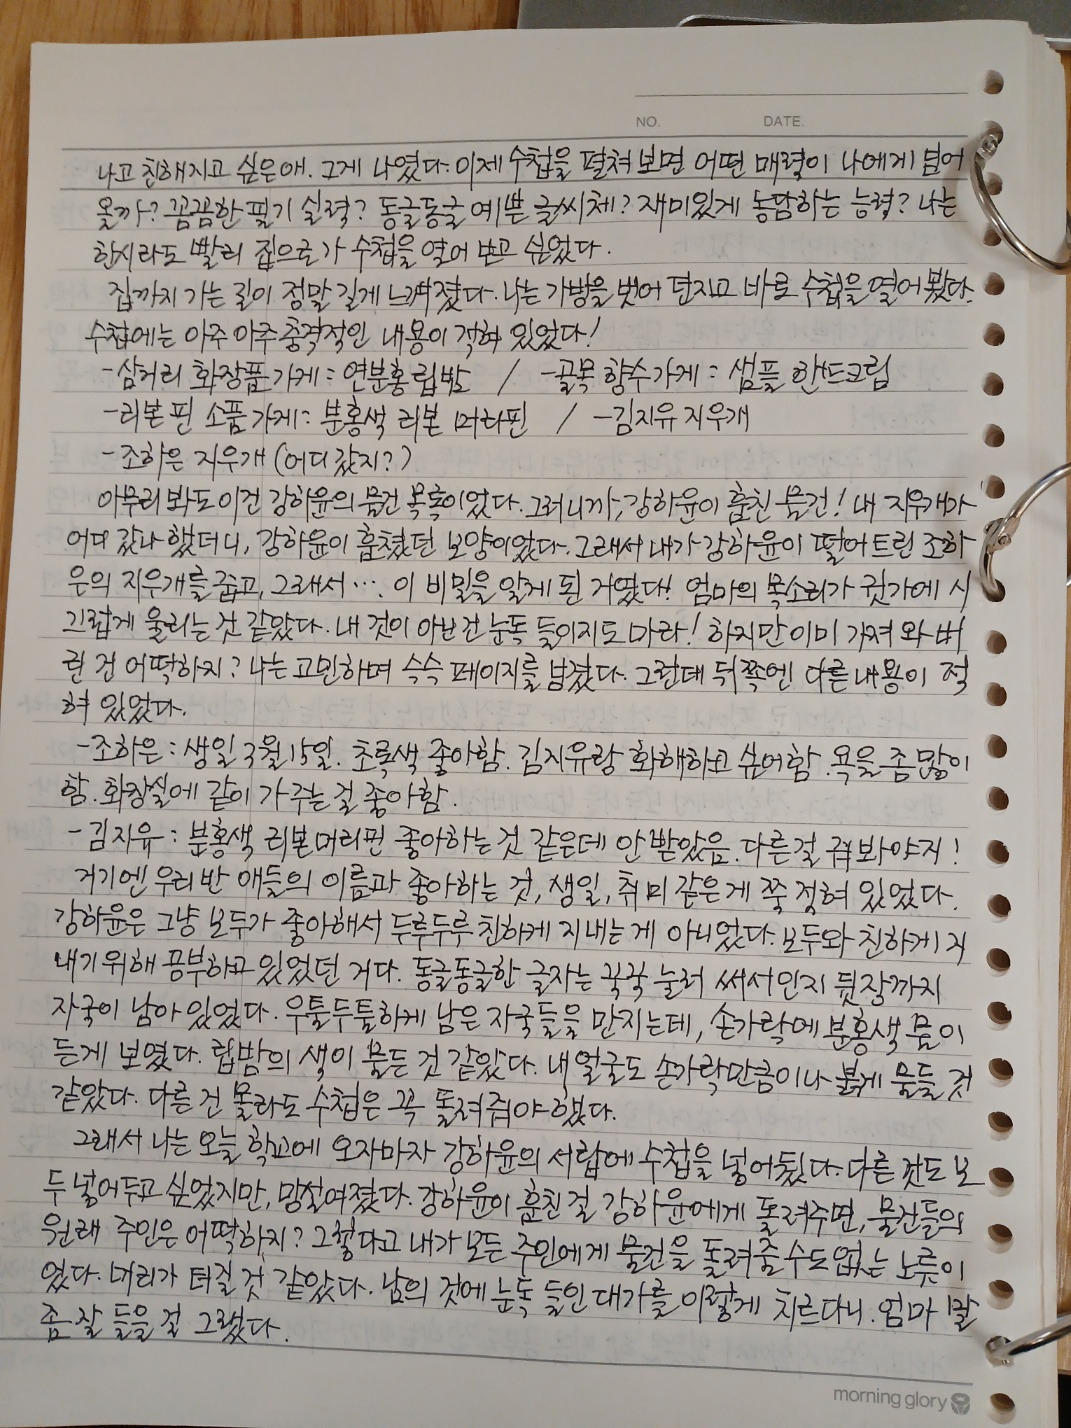 NO. DATE.
나고 친해지고 싶은 애. 그게 나였다. 이제 수첩을 펼쳐 보면 어떤 매력이 나에게 넘어
올까? 꼼꼼한 필기 실력? 동글동글 예쁜 글씨체? 재미있게 농담하는 능력? 나는
한시라도 빨리 집으로 가 수첩을 열어 보고 싶었다.
집까지 가는 길이 정말 길게 느껴졌다. 나는 가방을 벗어 던지고 바로 수첩을 열어 봤다.
수첩에는 아주 아주 충격적인 내용이 적혀 있었다!
-삼거리 화장품 가게: 연분홍 립밤 / -골목 향수가게: 샘플 핸드크림
-리본핀 소품 가게: 분홍색 리본 머리핀 / -김지유 지우개
-조하은 지우개 (어디 갔지?)
아무리 봐도 이건 강하윤의 물건 목록이었다. 그러니까, 강하윤이 훔친 물건! 내 지우개가
어디 갔나 했더니, 강하윤이 훔쳤던 모양이었다. 그래서 내가 강하윤이 떨어트린 조하
은의 지우개를 줍고, 그래서… 이 비밀을 알게 된 거였다! 엄마의 목소리가 귓가에 시
끄럽게 울리는 것 같았다. 내 것이 아닌 건 눈독 들이지도 마라! 하지만 이미 가져 와 버
린 건 어떡하지? 나는 고민하며 슥슥 페이지를 넘겼다. 그런데 뒤쪽엔 다른 내용이 적
혀 있었다.
-조하은: 생일 3월 15일. 초록색 좋아함. 김지유랑 화해하고 싶어함. 욕을 좀 많이
함. 화장실에 같이 가 주는 걸 좋아함.
-김지유: 분홍색 리본 머리핀 좋아하는 것 같은데 안 받았음. 다른 걸 줘 봐야지!
거기엔 우리 반 애들의 이름과 좋아하는 것, 생일, 취미 같은 게 쭉 적혀 있었다.
강하윤은 그냥 모두가 좋아해서 두루두루 친하게 지내는 게 아니었다. 모두와 친하게 지
내기 위해 공부하고 있었던 거다. 동글동글한 글자는 꾹꾹 눌러 써서인지 뒷장까지
자국이 남아 있었다. 우툴두툴하게 남은 자국들을 만지는데, 손가락에 분홍색 물이
든게 보였다. 립밤의 색이 물든 것 같았다. 내 얼굴도 손가락만큼이나 붉게 물들 것
같았다. 다른 건 몰라도 수첩은 꼭 돌려줘야 했다.
그래서 나는 오늘 학교에 오자마자 강하윤의 서랍에 수첩을 넣어뒀다. 다른 것도 모
두 넣어두고 싶었지만, 망설여졌다. 강하윤이 훔친 걸 강하윤에게 돌려주면, 물건들의
원래 주인은 어떡하지? 그렇다고 내가 모든 주인에게 물건을 돌려줄 수도 없는 노릇이
었다. 머리가 터질 것 같았다. 남의 것에 눈독 들인 대가를 이렇게 치르다니. 엄마 말
좀 잘 들을 걸 그랬다.
morning glory